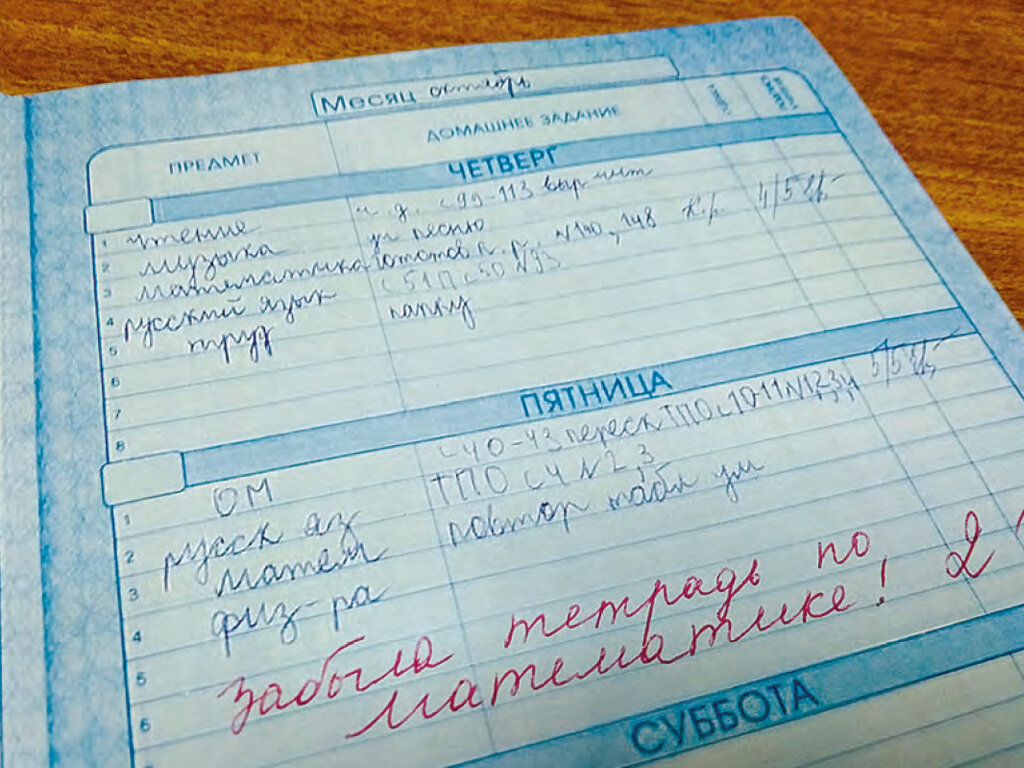 Месяц октябрь
ПРЕДМЕТ ДОМАШНЕЕ ЗАДАНИЕ
ЧЕТВЕРГ
1 чтение ч. д. с 99-113 выр чит
2 музыка уч песню
3 математика к. р. N 140, 148 К/р 4/5
4 русский язык с 51 П с 50 N 93
5 труд папку
6
7
8
ПЯТНИЦА
1 ОМ с 40-43 переск ТПО с 10-11 N 1,2,3,4 5/5
2 русск яз ТПО с 4 N 2,3
3 матем повтор табл ум
4 физ-ра
5 забыла тетрадь по
6 математике! 2
СУББОТА